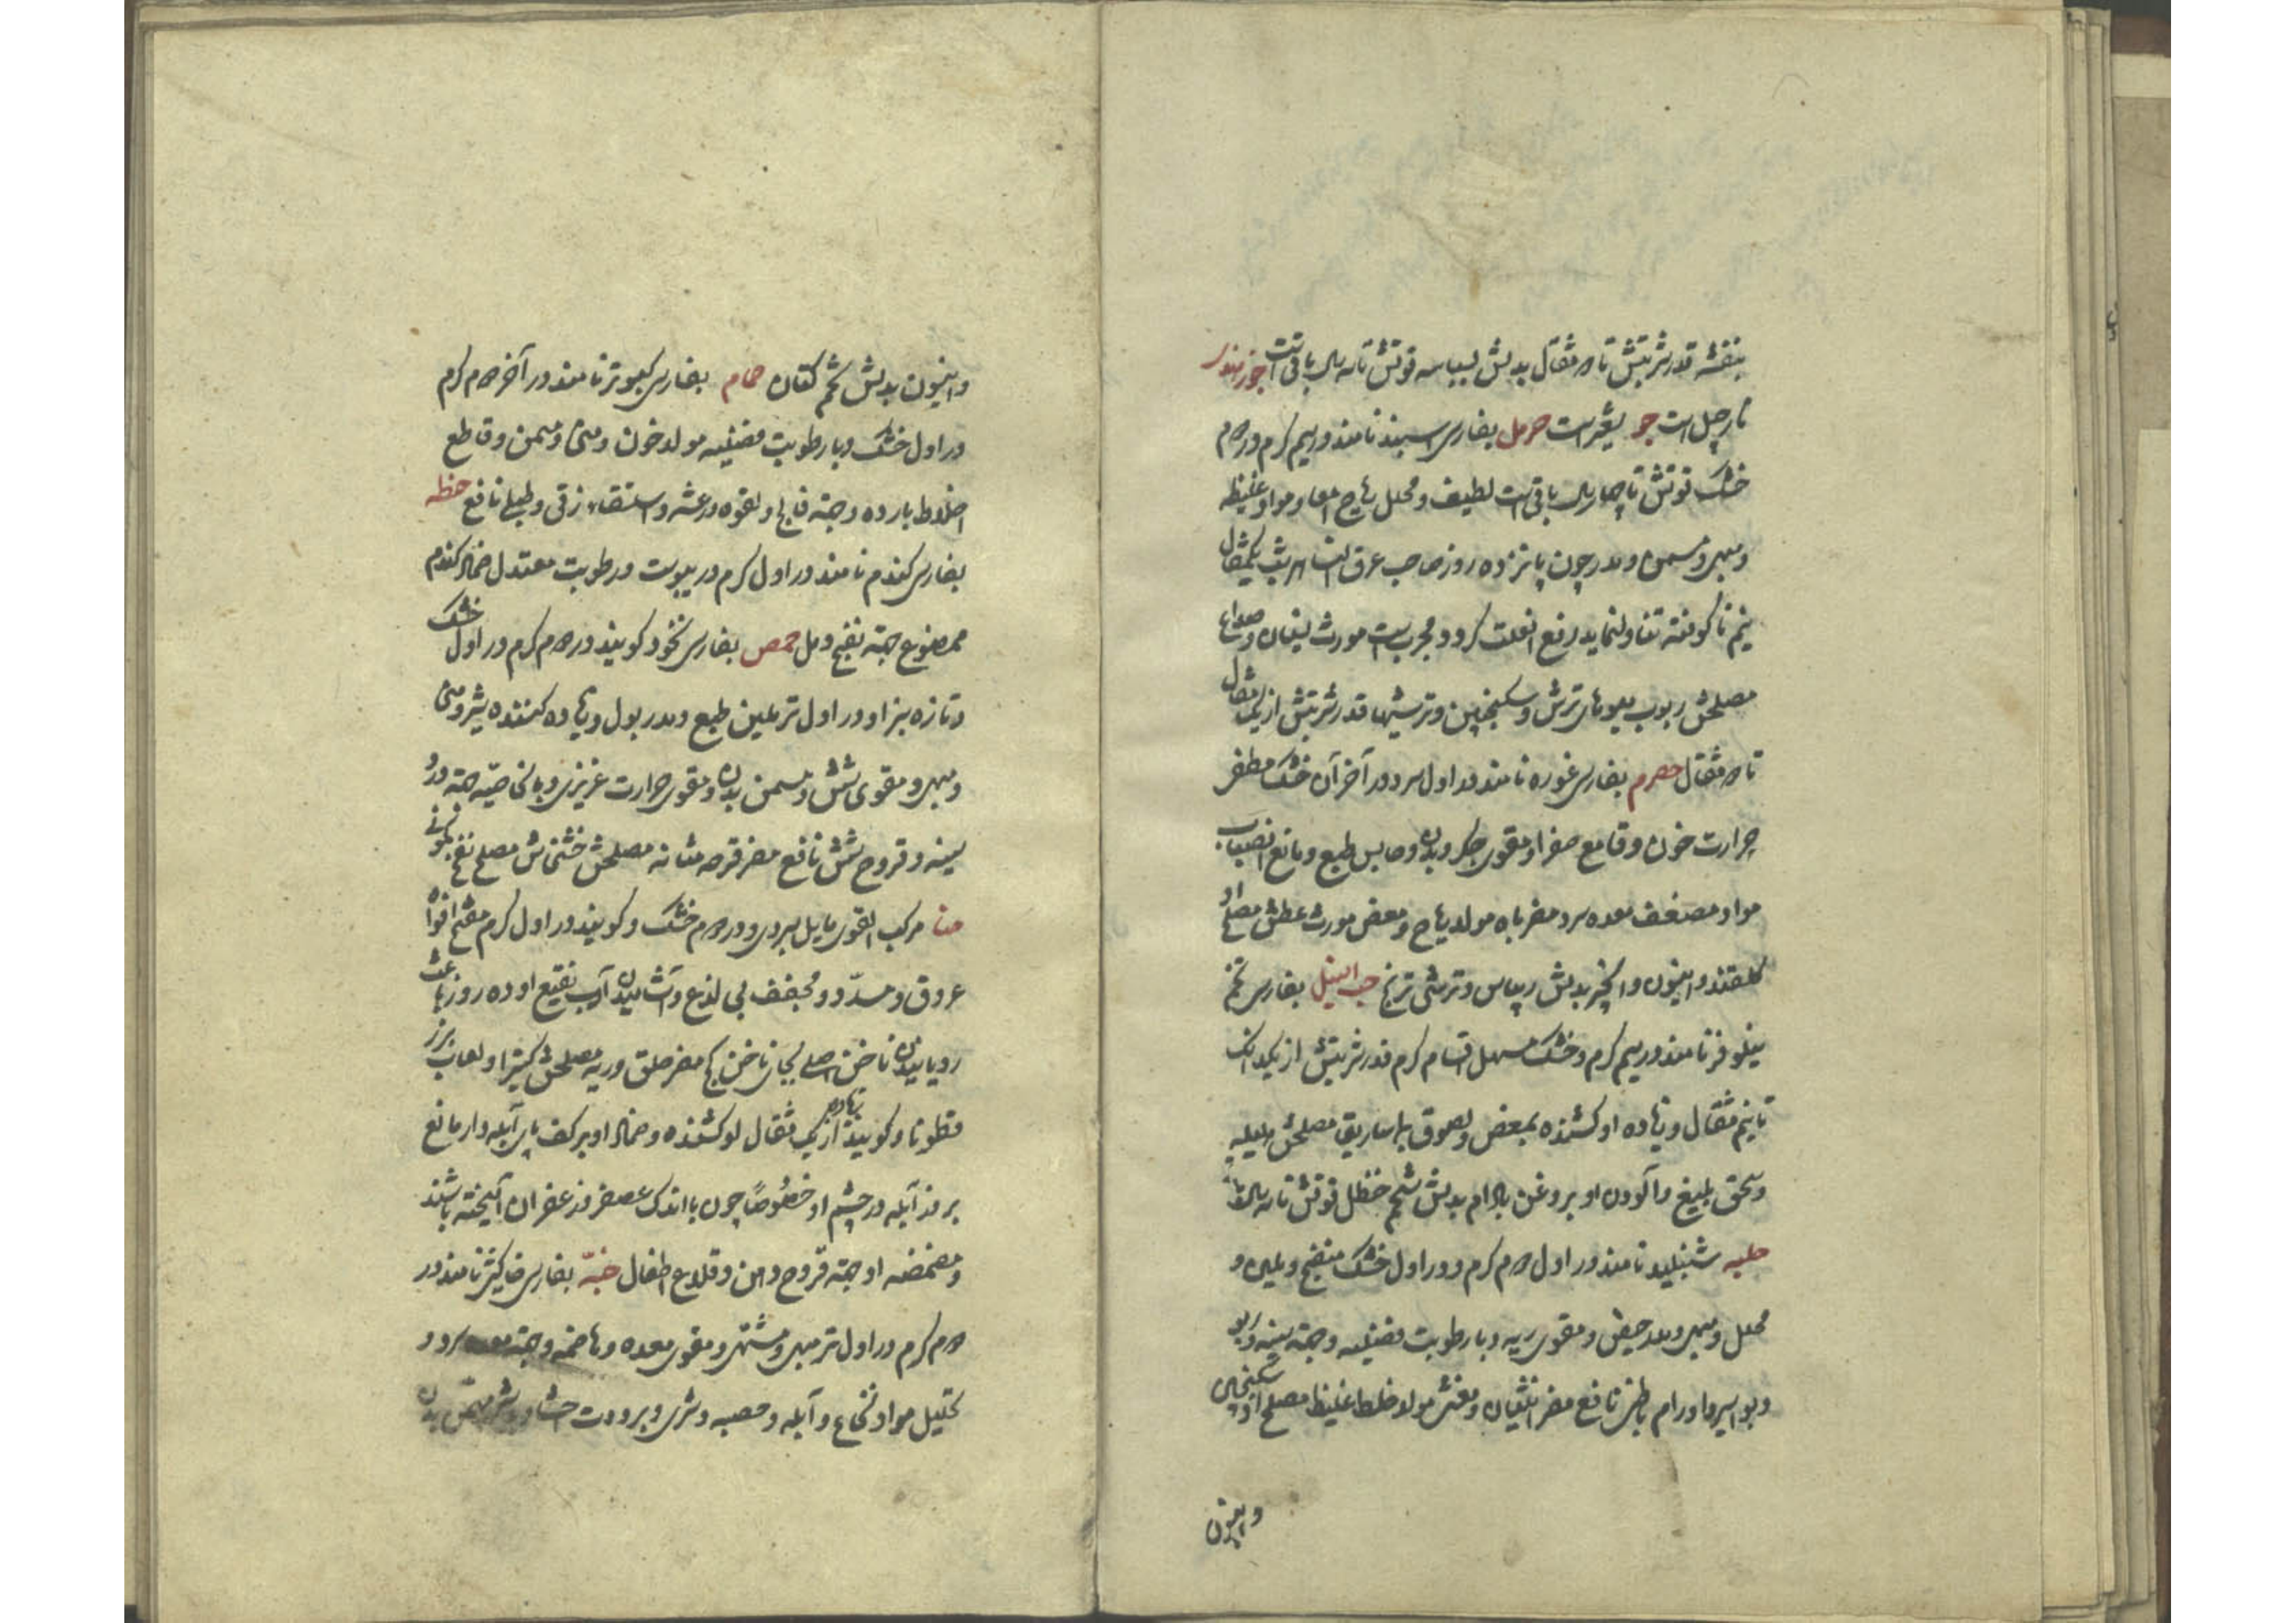 بنفشه قدر شربتش تا دو مثقال بدلش بسباسه قوتش تا سه سال باقی است جوز هندی
نارجیل است جو شعیر است حرمل بفارسی اسپند نامند در سیم گرم و در دوم
خشک قوتش تا چهار سال باقی است لطیف و محلل ریاح امعا و مواد غلیظه
و مبهی و مسمن و مدر چون پانزده روز صاحب عرق النسا هر شب یکمثقال
نیم ناکوفته تناول نماید رفع آن علت گردد مجرب است مورث غثیان و صداع
مصلحش ربوب میوهای ترش و سکنجبین و ترشیها قدر شربتش از یک مثقال
تا دو مثقال حصرم بفارسی غوره نامند در اول سرد و در آخر آن خشک مطفی
حرارت خون و قامع صفرا و مقوی جگر و بدن و حابس طبع و مانع انصباب
مواد مضعف معده سرد مضر باه مولد ریاح و مغص مورث عطش مصلح او
گلقند و انیسون و انجیر بدلش ریباس و ترشی ترنج حب النیل بفارسی تخم
نیلوفر نامند در سیم گرم و خشک مسهل اقسام کرم قدر شربتش از یکدانک
تا نیم مثقال و زیاده او کشنده بمغص و لصوق بماساریقا مصلحش هلیله
و سحق بلیغ و آلودن او بروغن بادام بدلش شحم حنظل قوتش تا سه سال
حلبه شنبلید نامند در اول دوم گرم و در اول خشک منضج و ملین و
محلل و مبهی و مدر حیض و مقوی ریه و با رطوبت فضلیه و جهة سینه و ربو
و بواسیر و اورام باطنی نافع مضر انثیان و مغثی مولد خلط غلیظ مصلح او سکنجبین
و انیسون
و انیسون بدلش تخم کتان حمام بفارسی کبوتر نامند در آخر دوم گرم
در اول خشک و با رطوبت فضلیه مولد خون و منی و مسمن و قاطع
اخلاط بارده و جهة فالج و لقوه و رعشه و استسقاء زقی و طبلی نافع حنطه
بفارسی گندم نامند در اول گرم در یبوست و رطوبت معتدل ضماد گندم
ممضوغ جهة نضج دمل حمص بفارسی نخود گویند در دوم گرم در اول خشک
و تازه سبز او در اول تر ملین طبع و مدر بول و زیاده کننده شیر و منی
و مبهی و مقوی شش و مسمن بدن و مقوی حرارت غریزی و بالخاصیه جهة درد
سینه و قروح شش نافع مضر قرحه مثانه مصلحش خشخاش مصلح نفخ کمونی
حنا مرکب القوی مایل بسردی و در دوم خشک و گویند در اول گرم مفتح افواه
عروق و مسدد و مجفف بی لذع و آشامیدن آب نقیع او ده روز باعث
رویانیدن ناخن اصلی بجای ناخن کج مضر حلق و ریه مصلحش کتیرا و لعاب بزر
قطونا و گویند زیاده بر از یک مثقال او کشنده و ضماد او بر کف پای آبله دار مانع
بروز آبله در چشم او خصوصاً چون با اندک عصفر و زعفران آمیخته باشند
و مضمضه او جهة قروح دهن و قلاع اطفال حبّه بفارسی خاکشی نامند در
دوم گرم در اول تر مبهی و مشتهی و مقوی معده و هاضمه و جهة معده سرد و
تحلیل مواد نخاع و آبله و حصبه و شری و برودت احشاء بدن